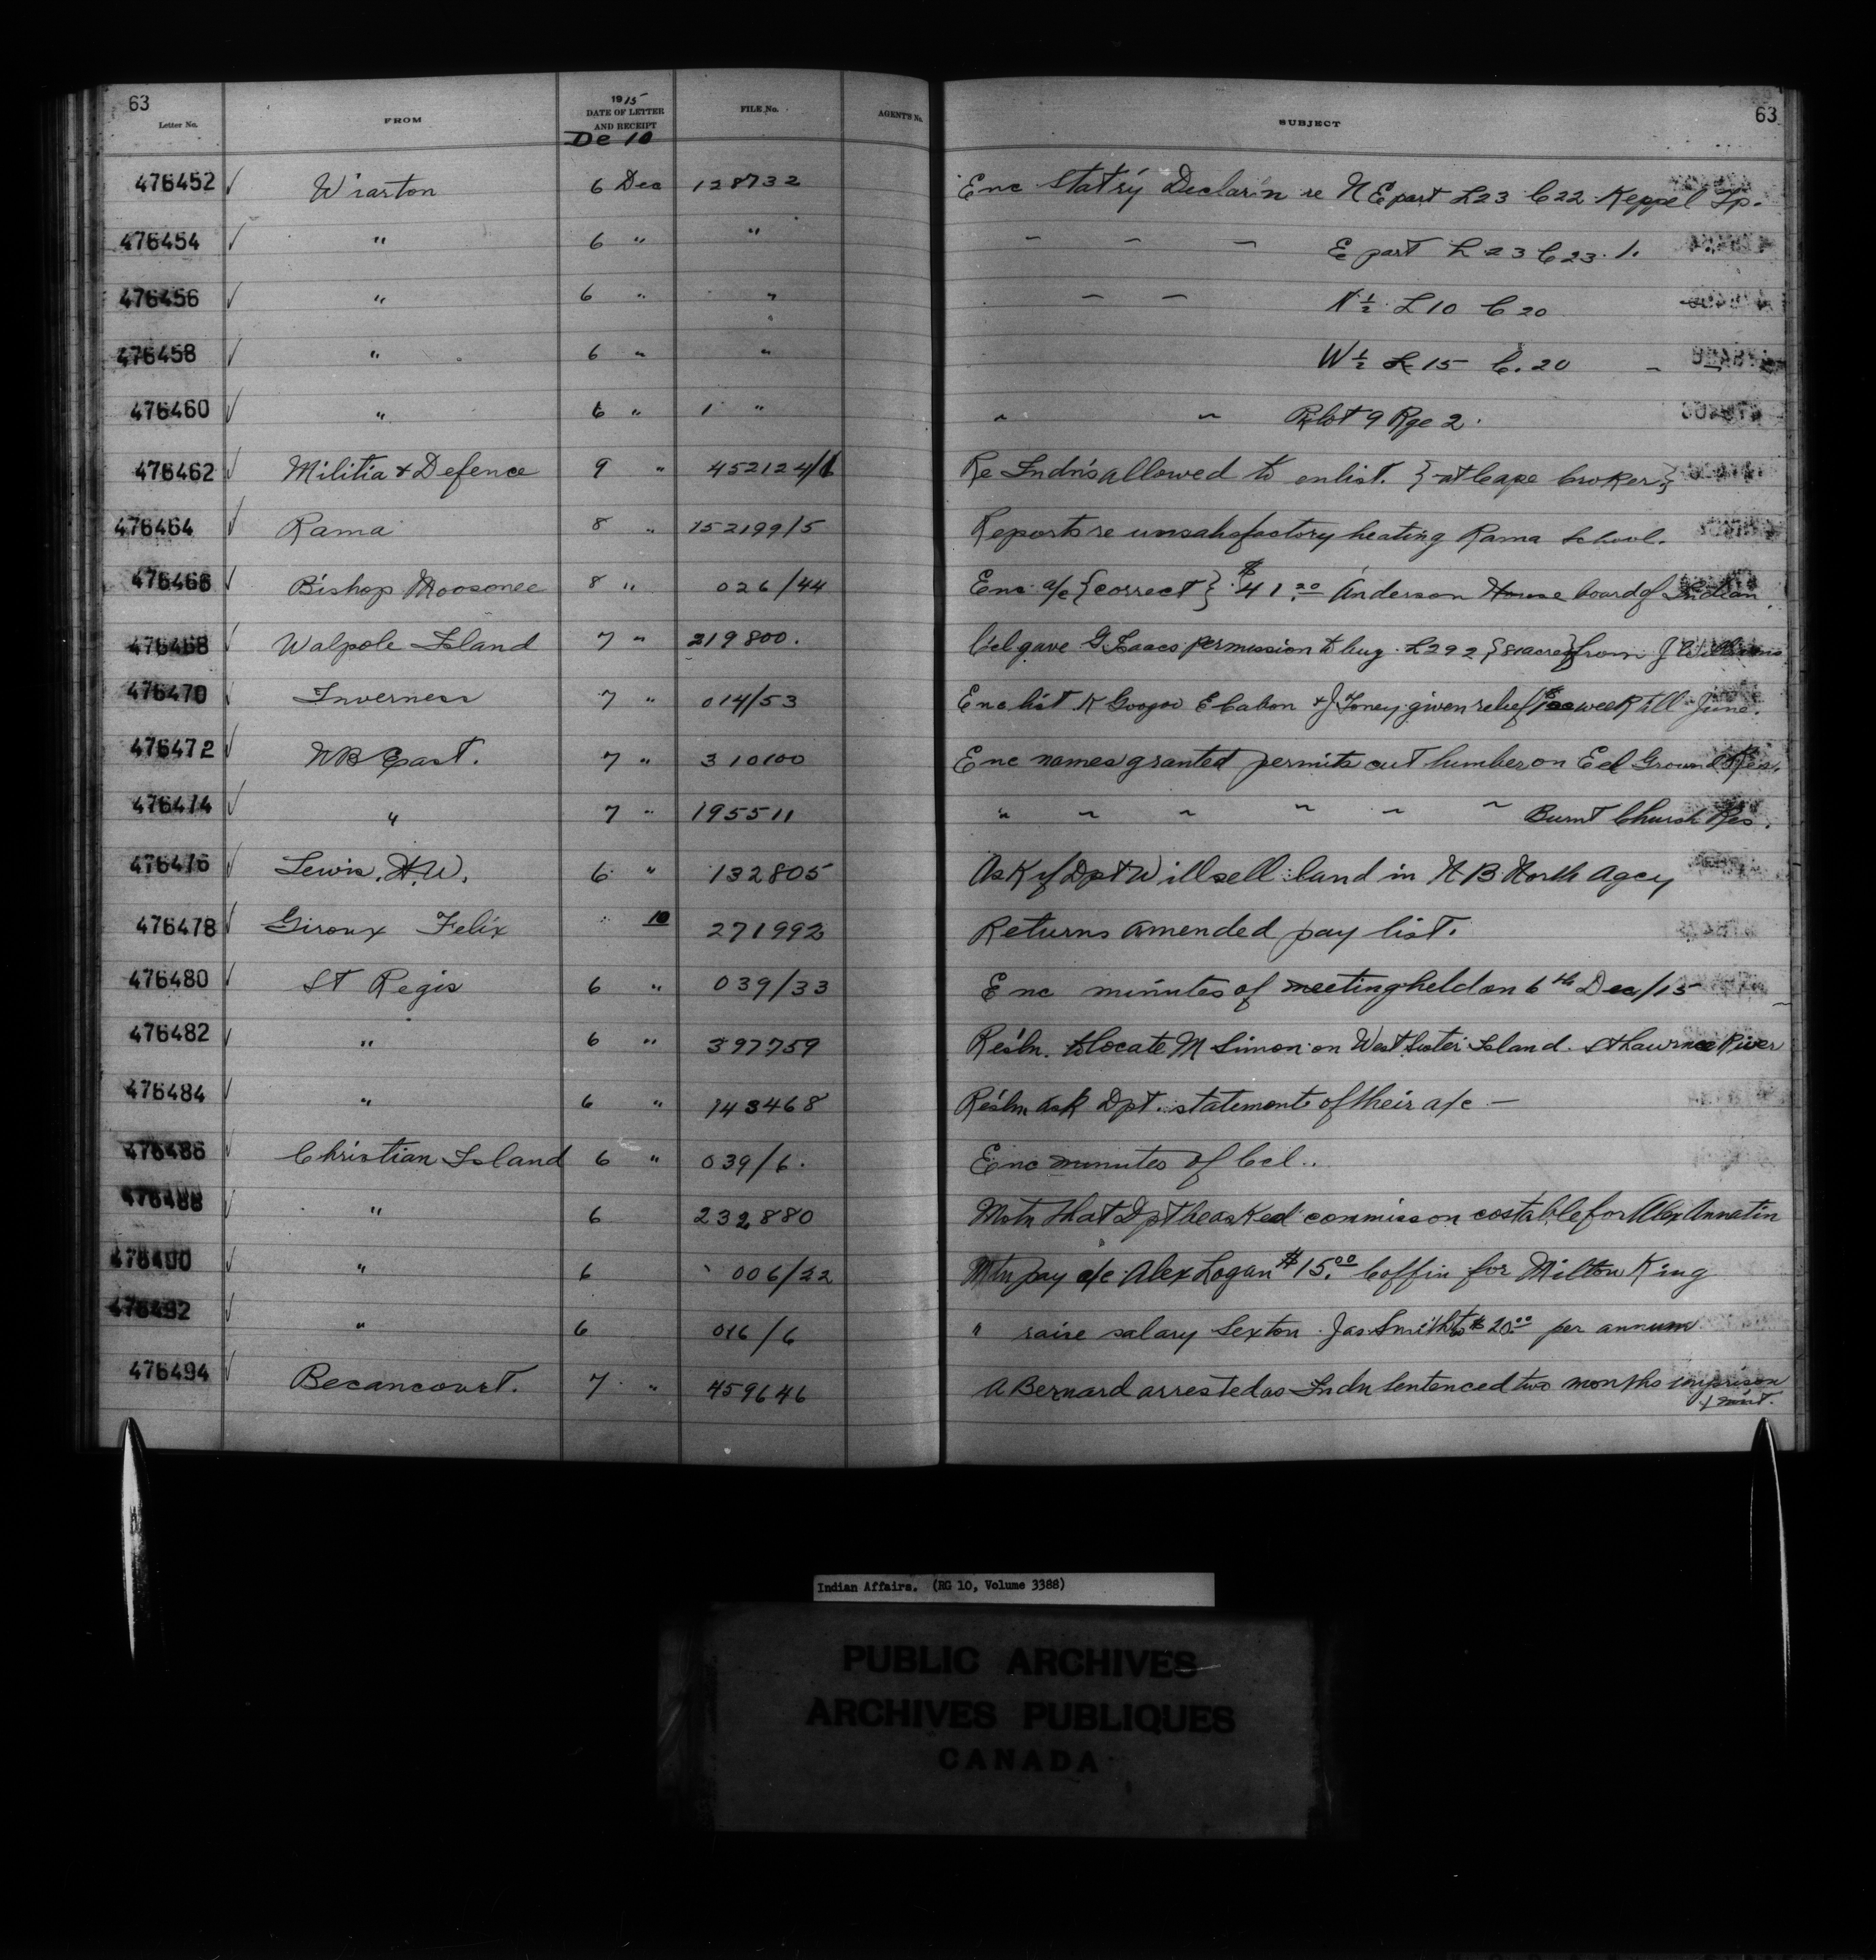 63 63
1915
Letter No. FROM DATE OF LETTER AND RECEIPT FILE No. AGENT'S No. SUBJECT
De 10
476452 Wiarton 6 Dec 128732 Enc Stat'ry Declar'n re N E part L23 C22 Keppel Tp.
476454 " 6 " " E part L 23 C 23
476456 " 6 " " N ½ L 10 C 20
476458 " 6 " " W ½ L 15 C. 20
476460 " 6 " 1 " Plot 9 Rge 2.
476462 Militia & Defence 9 " 452124/1 Re Indn's allowed to enlist. {at Cape Croker}
476464 Rama 8 " 152199/5 Reports re unsatisfactory heating Rama School.
476466 Bishop Moosonee 8 " 026/44 Enc a/c {correct} $41.20 Anderson House board of Indian
476468 Walpole Island 7 " 219800. Ccl gave G Isaacs permission to buy L292 {81 acres} from J Williams
476470 Inverness 7 " 014/53 Enc list K Googoo & J Toney given relief week till June.
476472 NB East. 7 " 310100 Enc names granted permits cut lumber on Eel Ground Res.
476474 " 7 " 195511 " " " " " " Burnt Church Res.
476476 Lewis, H.W. 6 " 132805 Ask if Dpt Will sell land in N B North Agcy
476478 Giroux Felix 10 271992 Returns amended pay list.
476480 St Regis 6 " 039/33 Enc minutes of meeting held on 6th Dec/15
476482 " 6 " 397759 Res'ln. to locate M Simon on West Sister Island. St Lawrnce River
476484 " 6 " 143468 Res'ln ask Dpt. statement of their a/c —
476486 Christian Island 6 " 039/6. Enc minutes of Ccl..
476488 " 6 232880 Motn that Dpt be asked commisson costable for Alex Annatin
476490 " 6 006/22 Mtn pay a/c Alex Logan $15.00 Coffin for Milton King
476492 " 6 016/6 " raise salary Sexton Jas Smith to $20.00 per annum
476494 Becancourt. 7 " 459646 A Bernard arrested as Indn Sentenced two months imprison
ment.
Indian Affairs. (RG 10, Volume 3388)
PUBLIC ARCHIVES
ARCHIVES PUBLIQUES
CANADA